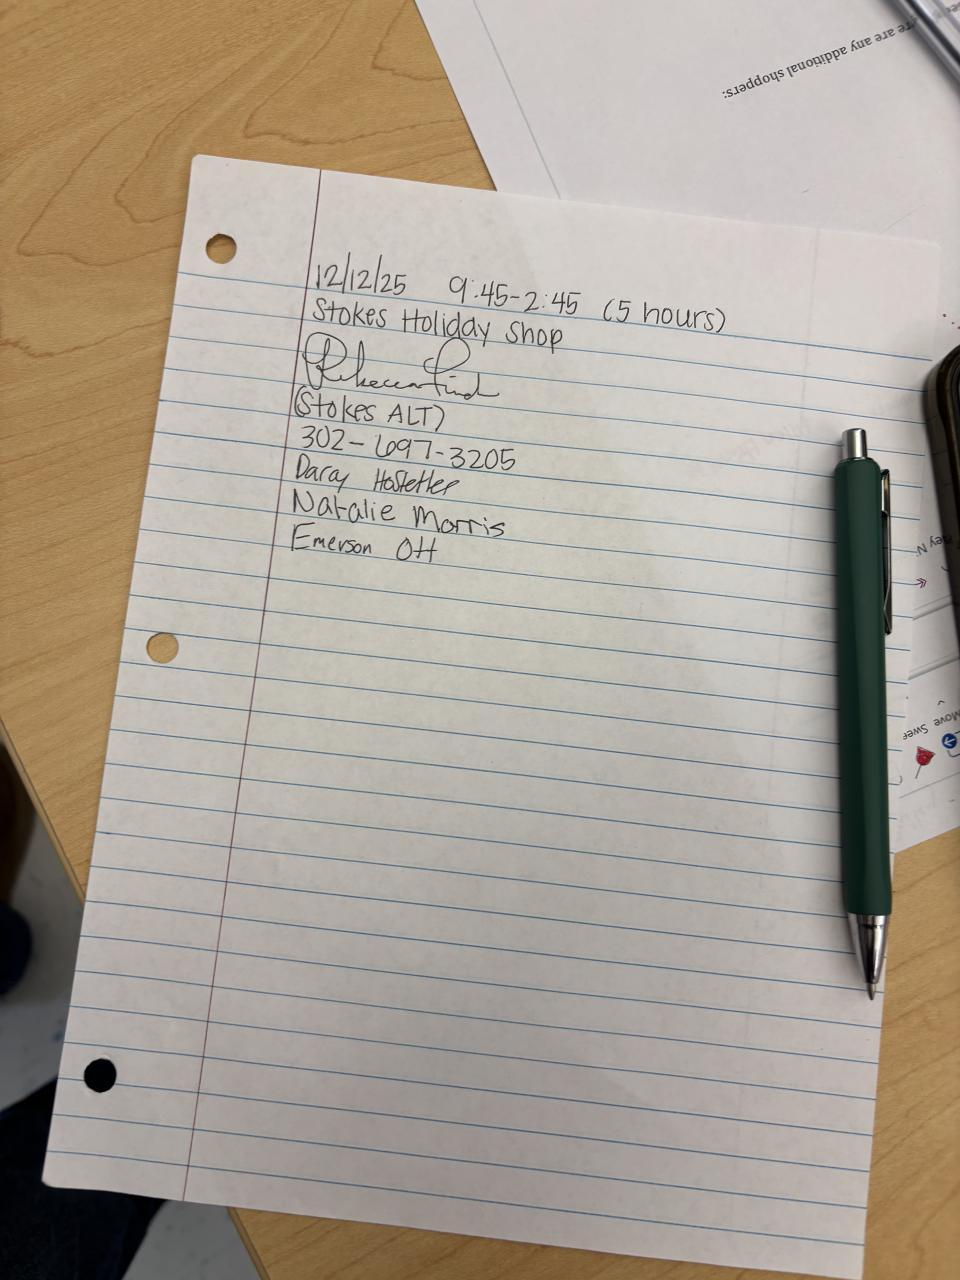 12/12/25 9:45-2:45 (5 hours)
Stokes Holiday Shop
Rebecca
(Stokes ALT)
302-697-3205
Daray Hostetler
Natalie Morris
Emerson Ott
ere are any additional shoppers:
ney N.
Move Swee